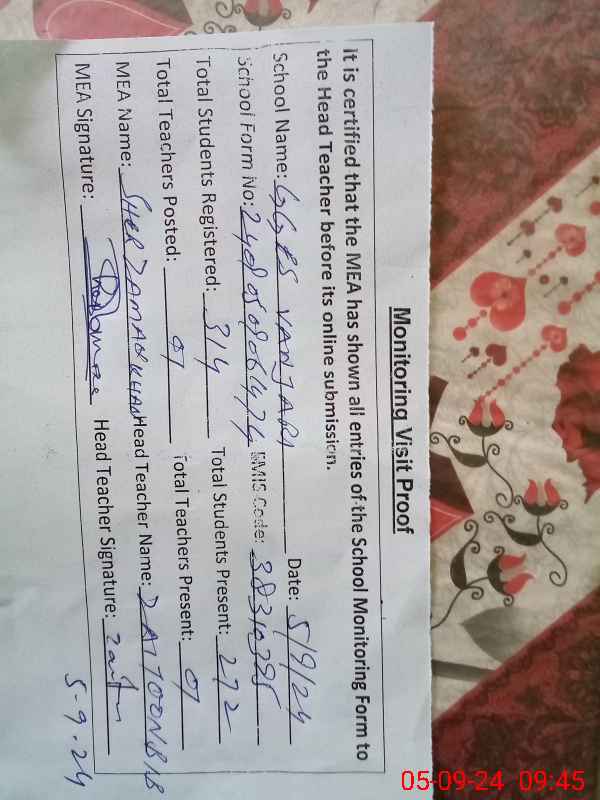 Monitoring Visit Proof
It is certified that the MEA has shown all entries of the School Monitoring Form to
the Head Teacher before its online submission.
School Name: GGPS VANJARI Date: 5/9/24
School Form No: 24080506474 EMIS Code: 38310395
Total Students Registered: 314 Total Students Present: 272
Total Teachers Posted: 07 Total Teachers Present: 07
MEA Name: SHER ZAMAN KHAN Head Teacher Name: ZAITOON BIB
MEA Signature: Head Teacher Signature:
5-9-24
05-09-24 09:45